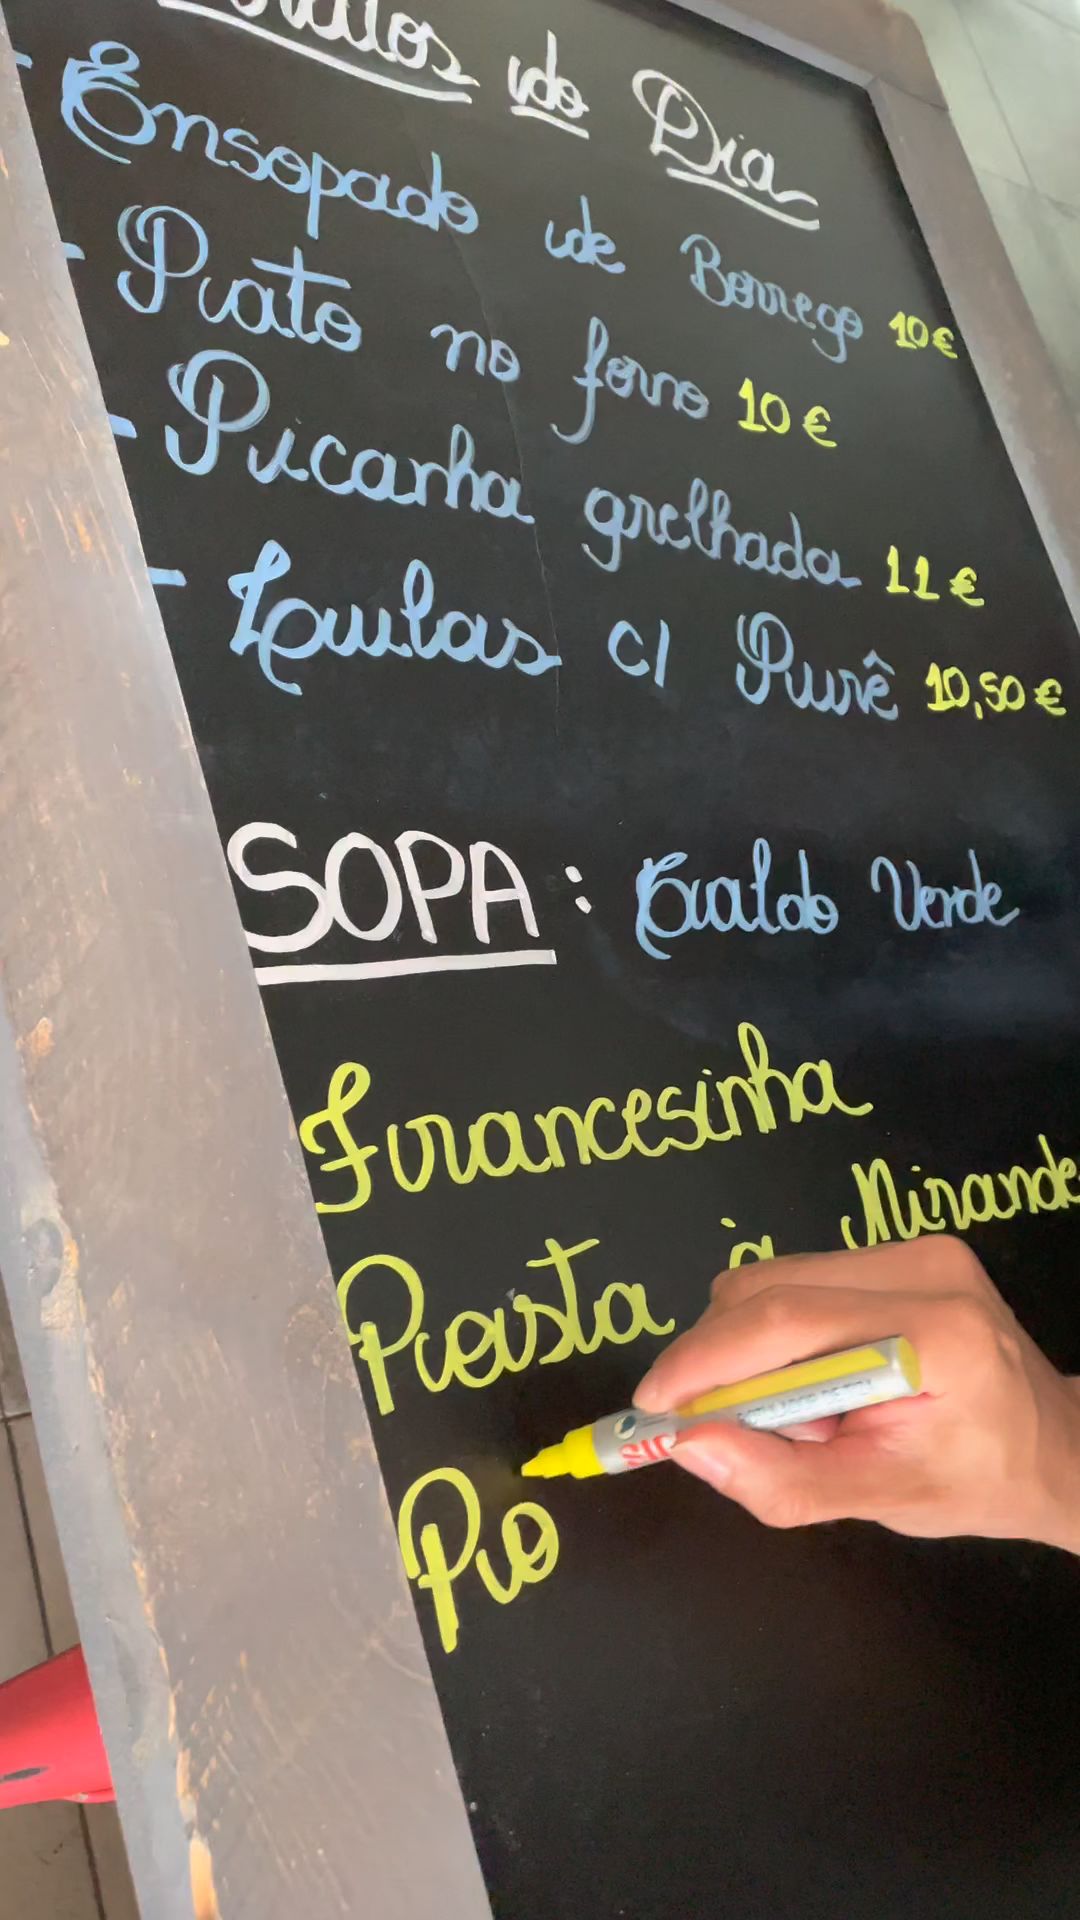 Pratos do Dia
- Ensopado de Borrego 10€
- Pato no forno 10€
- Picanha grelhada 11€
- Lulas c/ Purê 10,50€
SOPA: Caldo Verde
Francesinha
Posta à Mirande
Po